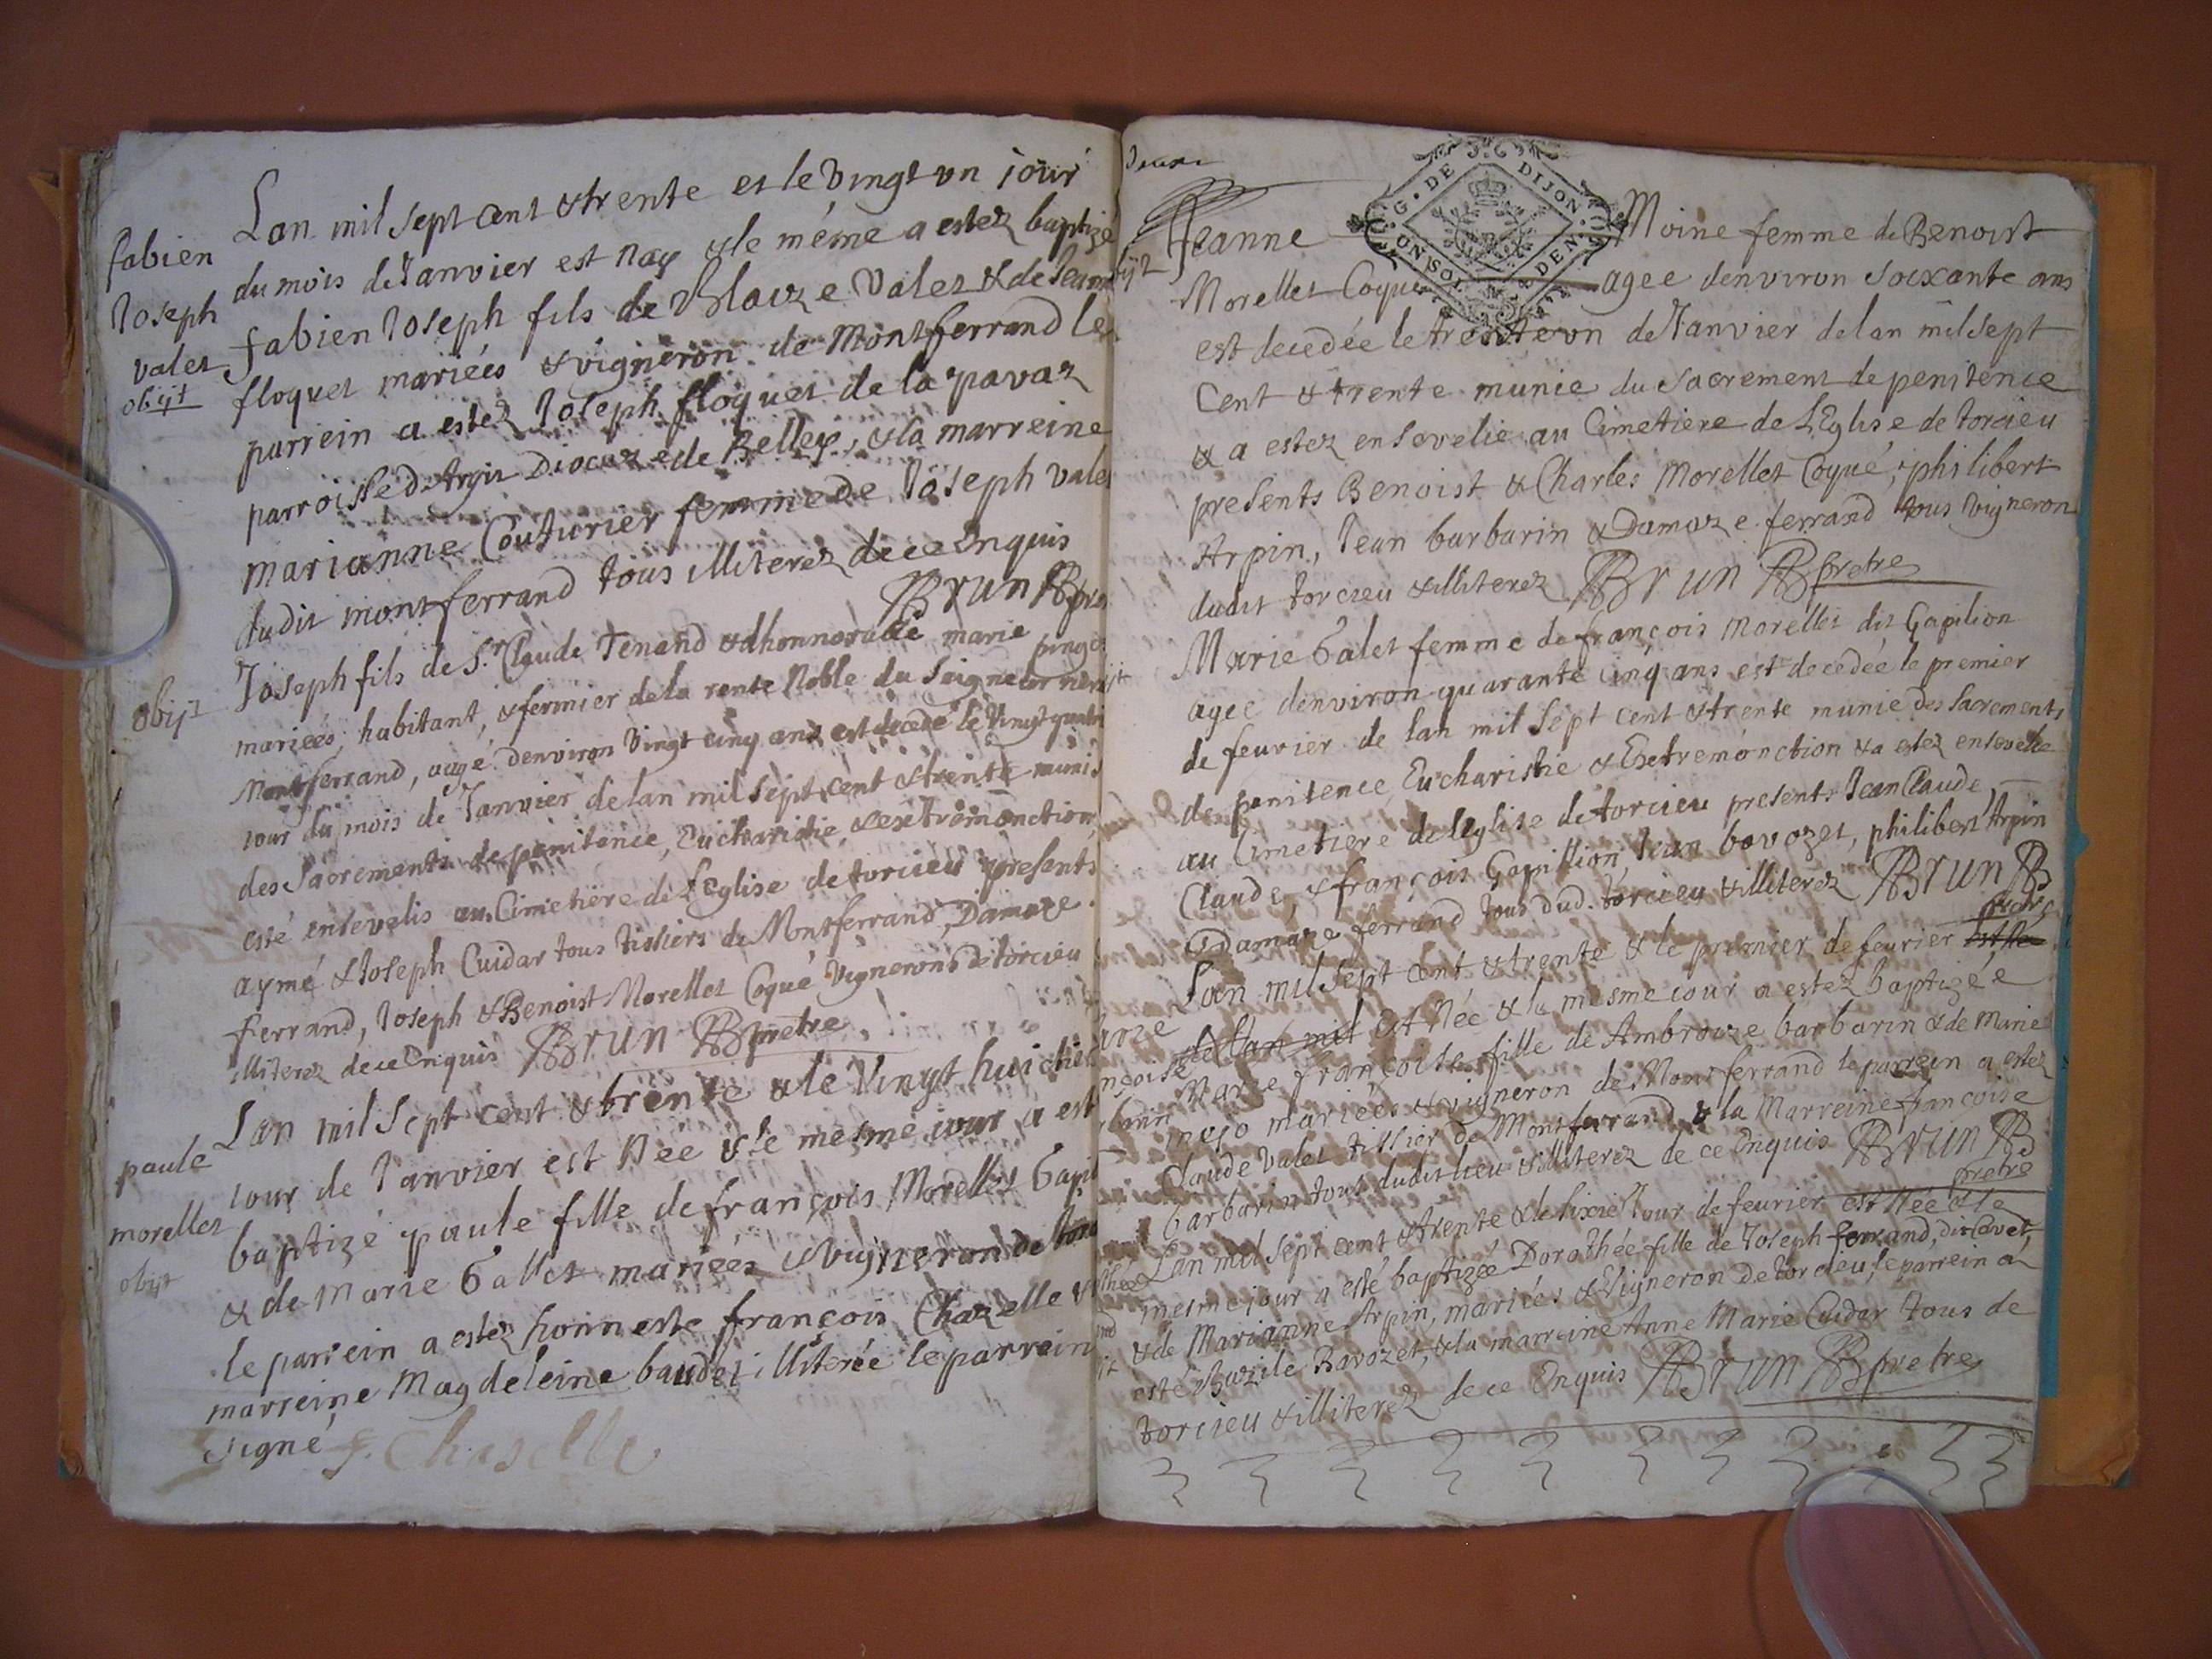 Lan mil sept cent & trente et le vingt vn jour
fabien
du mois de Janvier est nay & le méme a estez baptizé
Joseph
fabien Joseph fils de Blaize Valet & de Jeanne
valet
floquet mariées & vigneron de Montferrand le
obijt
parrein a estez Joseph floquet de la pavaz
parroisse d'Argis Diocuze de Belley, & la marreine
marianne Couturier femme de Joseph valet
dudit montferrand tous illiterez de ce Enquis
Brun prê
Joseph fils de Sr. Claude Tenand & dhonnorable marie pinge
obijt
mariées, habitant, & fermier de la rente Noble du Seigneur
Montferrand, aagé denviron vingt cinq ans est decedé le Vingt quatri
iour du mois de Janvier de lan mil sept cent & trente munis
des Sacrements de penitence, Eucharistie, & extrémonction
esté ensevelis au Cimetiere de L'eglise de torcieu presents
aymé & Joseph Cuidar tous tissiers de Montferrand, Damaze
ferrand, Joseph & Benoist Morellet Coqué vignerons de torcieu
illiterez de ce Enquis Brun prêtre
Lan mil sept cent & trente & le Vingt huictie
paule
iour de Janvier est Née & le mesme iour a est
morellet
baptizé paule fille de françois Morellet Gapil
obijt
& de Marie Gallet mariées & vigneron de torc
le parrein a estez honneste françois Chazelle &
marreine Magdeleine baudet illiterée le parrein
signé f. Chaselle
Jeanne
G. DE DIJON
Jeanne Moine femme de Benoist
Morellet Coqué agee denviron soixante ans
est decedée le trente vn de Janvier de lan mil sept
Cent & trente munie du Sacrement de penitence
& a estez ensevelie au Cimetiere de L'Eglise de torcieu
presents Benoist & Charles Morellet Coqué, philibert
Arpin, Jean barbarin & Damaze ferrand tous Vigneron
dudit torcieu & illiterez Brun prêtre
Marie Galet femme de françois Morellet dit Gapilion
agee denviron quarante cinq ans est decedée le premier
de feurier de lan mil sept cent & trente munie des Sacrements
de penitence Eucharistie & Extremonction & a estez ensevelie
au Cimetiere de leglise de torcieu presents Jean Claude,
Claude, & françois Gapillion, Jean bovozet, philibert Arpin
Damaze ferrand tous dud. torcieu & illiterez Brun
prêtre
Lan mil sept cent & trente & le premier de feurier
de lan mil Est Née & la mesme iour a estez baptizée
Marie françoise fille de Ambroize barbarin & de Marie
mariées & vigneron de Montferrand le parrein a estez
Claude Valet tissier de Montferrand & la Marreine françoise
barbarin tous dudit lieu & illiterez de ce Enquis Brun
prêtre
Lan mil sept cent & trente & le sixie Jour de feurier est Née & le
mesme iour a esté baptizée Dorothée fille de Joseph ferrand, dit
& de Marianne Arpin, mariées & Vigneron de torcieu, le parrein a
esté Bazile Bavozet, & la marreine Anne Marie Cuidar tous de
torcieu & illiterez de ce Enquis Brun prêtre